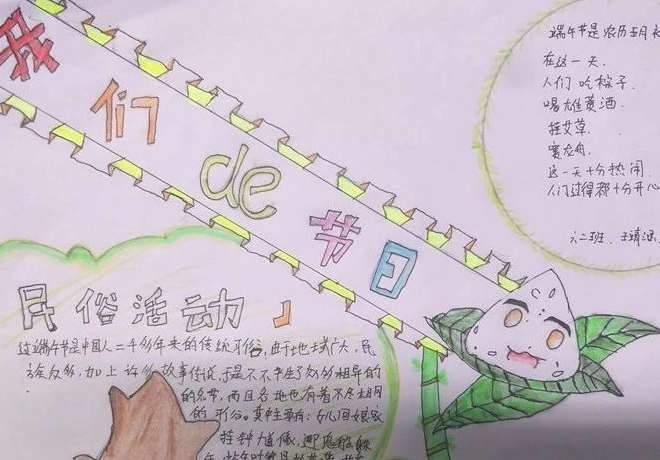 我们de节日
端午节是农历五月
在这一天.
人们吃粽子.
喝雄黄酒.
挂艾草.
赛龙舟.
这一天十分热闹.
人们过得都十分开心
六二班. 王靖
民俗活动
过端午节是中国人二千多年来的传统习俗,由于地域广大,民
族众多,加上许多故事传说,于是不不产生了众多相异的
的名节,而且各地也有着不尽相同
的习俗。其中主要有:女儿回娘家
挂钟馗像,迎鬼船躲
午,帖午时